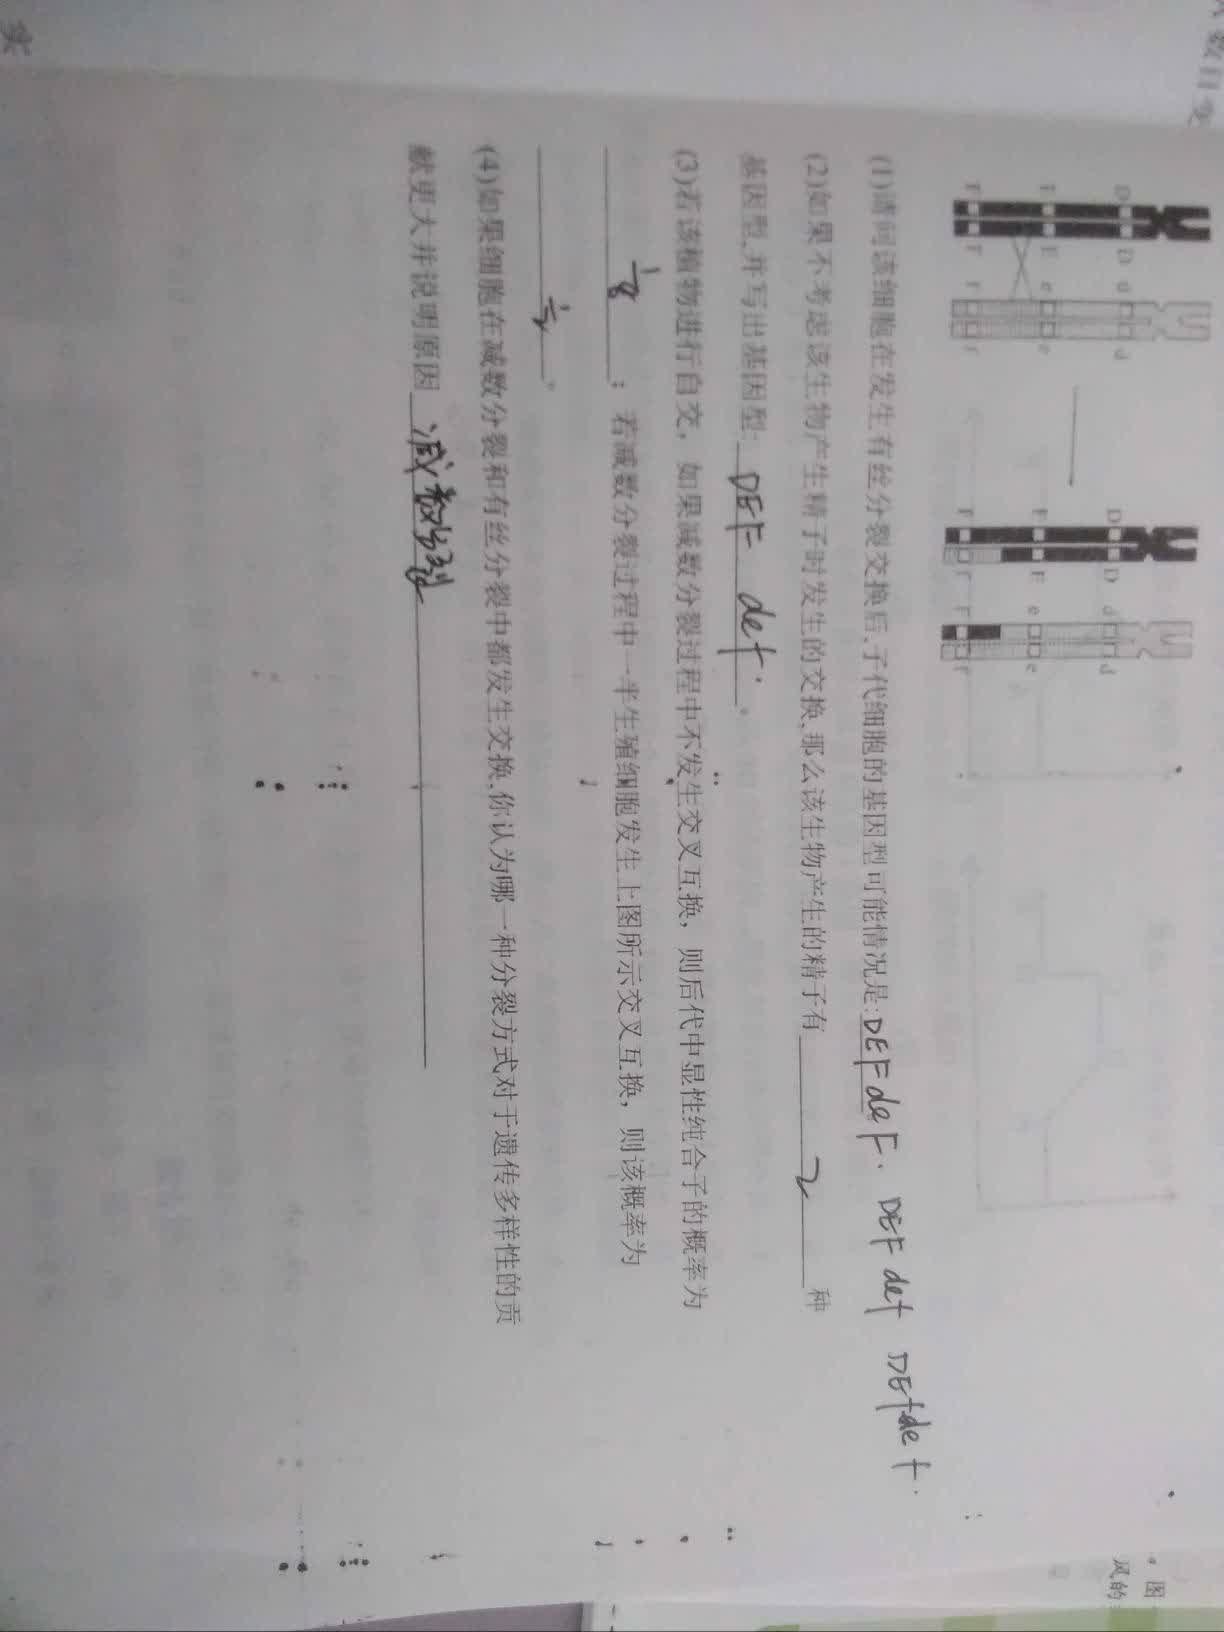 D D d d
E E e e
F F f f
D D d d
E E e e
F f F f
(1)请问该细胞在发生有丝分裂交换后,子代细胞的基因型可能情况是:DEFdeF. DEF def DEfdef.
(2)如果不考虑该生物产生精子时发生的交换,那么该生物产生的精子有 2 种
基因型,并写出基因型: DEF def. 。
(3)若该植物进行自交，如果减数分裂过程中不发生交叉互换，则后代中显性纯合子的概率为
1/8 ；若减数分裂过程中一半生殖细胞发生上图所示交叉互换，则该概率为
1/2 。
(4)如果细胞在减数分裂和有丝分裂中都发生交换,你认为哪一种分裂方式对于遗传多样性的贡
献更大并说明原因 减数分裂
图
风的